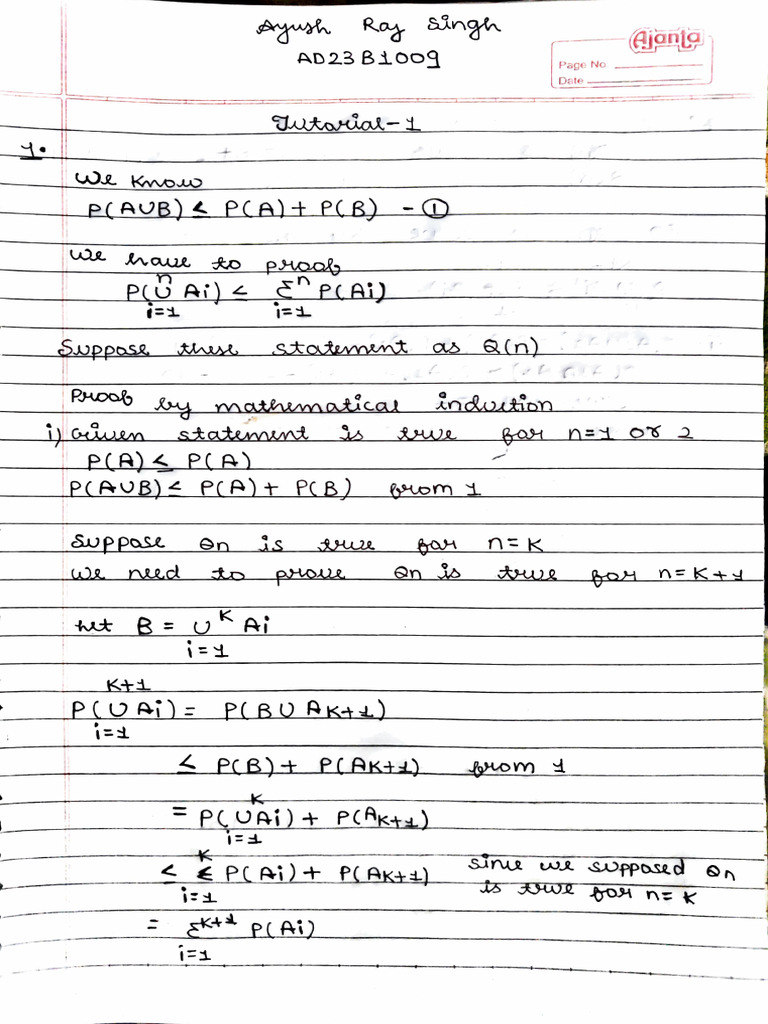 Ayush Raj Singh
AD23B1009
Ajanta
Page No.
Date
Tutorial-1
1.
We know
P(AUB) ≤ P(A) + P(B) - ①
We have to proof
P(∪ⁿᵢ₌₁ Ai) ≤ Σⁿᵢ₌₁ P(Ai)
Suppose these statement as Q(n)
Proof by mathematical induction
i) Given statement is true for n=1 or 2
P(A) ≤ P(A)
P(AUB) ≤ P(A) + P(B) from 1
Suppose Qn is true for n=K
We need to prove Qn is true for n=K+1
Let B = ∪ᴷᵢ₌₁ Ai
P(∪ᴷ⁺¹ᵢ₌₁ Ai) = P(B∪AK+1)
≤ P(B) + P(AK+1) from 1
= P(∪ᴷᵢ₌₁ Ai) + P(AK+1)
≤ Σᴷᵢ₌₁ P(Ai) + P(AK+1) since we supposed Qn
is true for n=K
= Σᴷ⁺¹ᵢ₌₁ P(Ai)